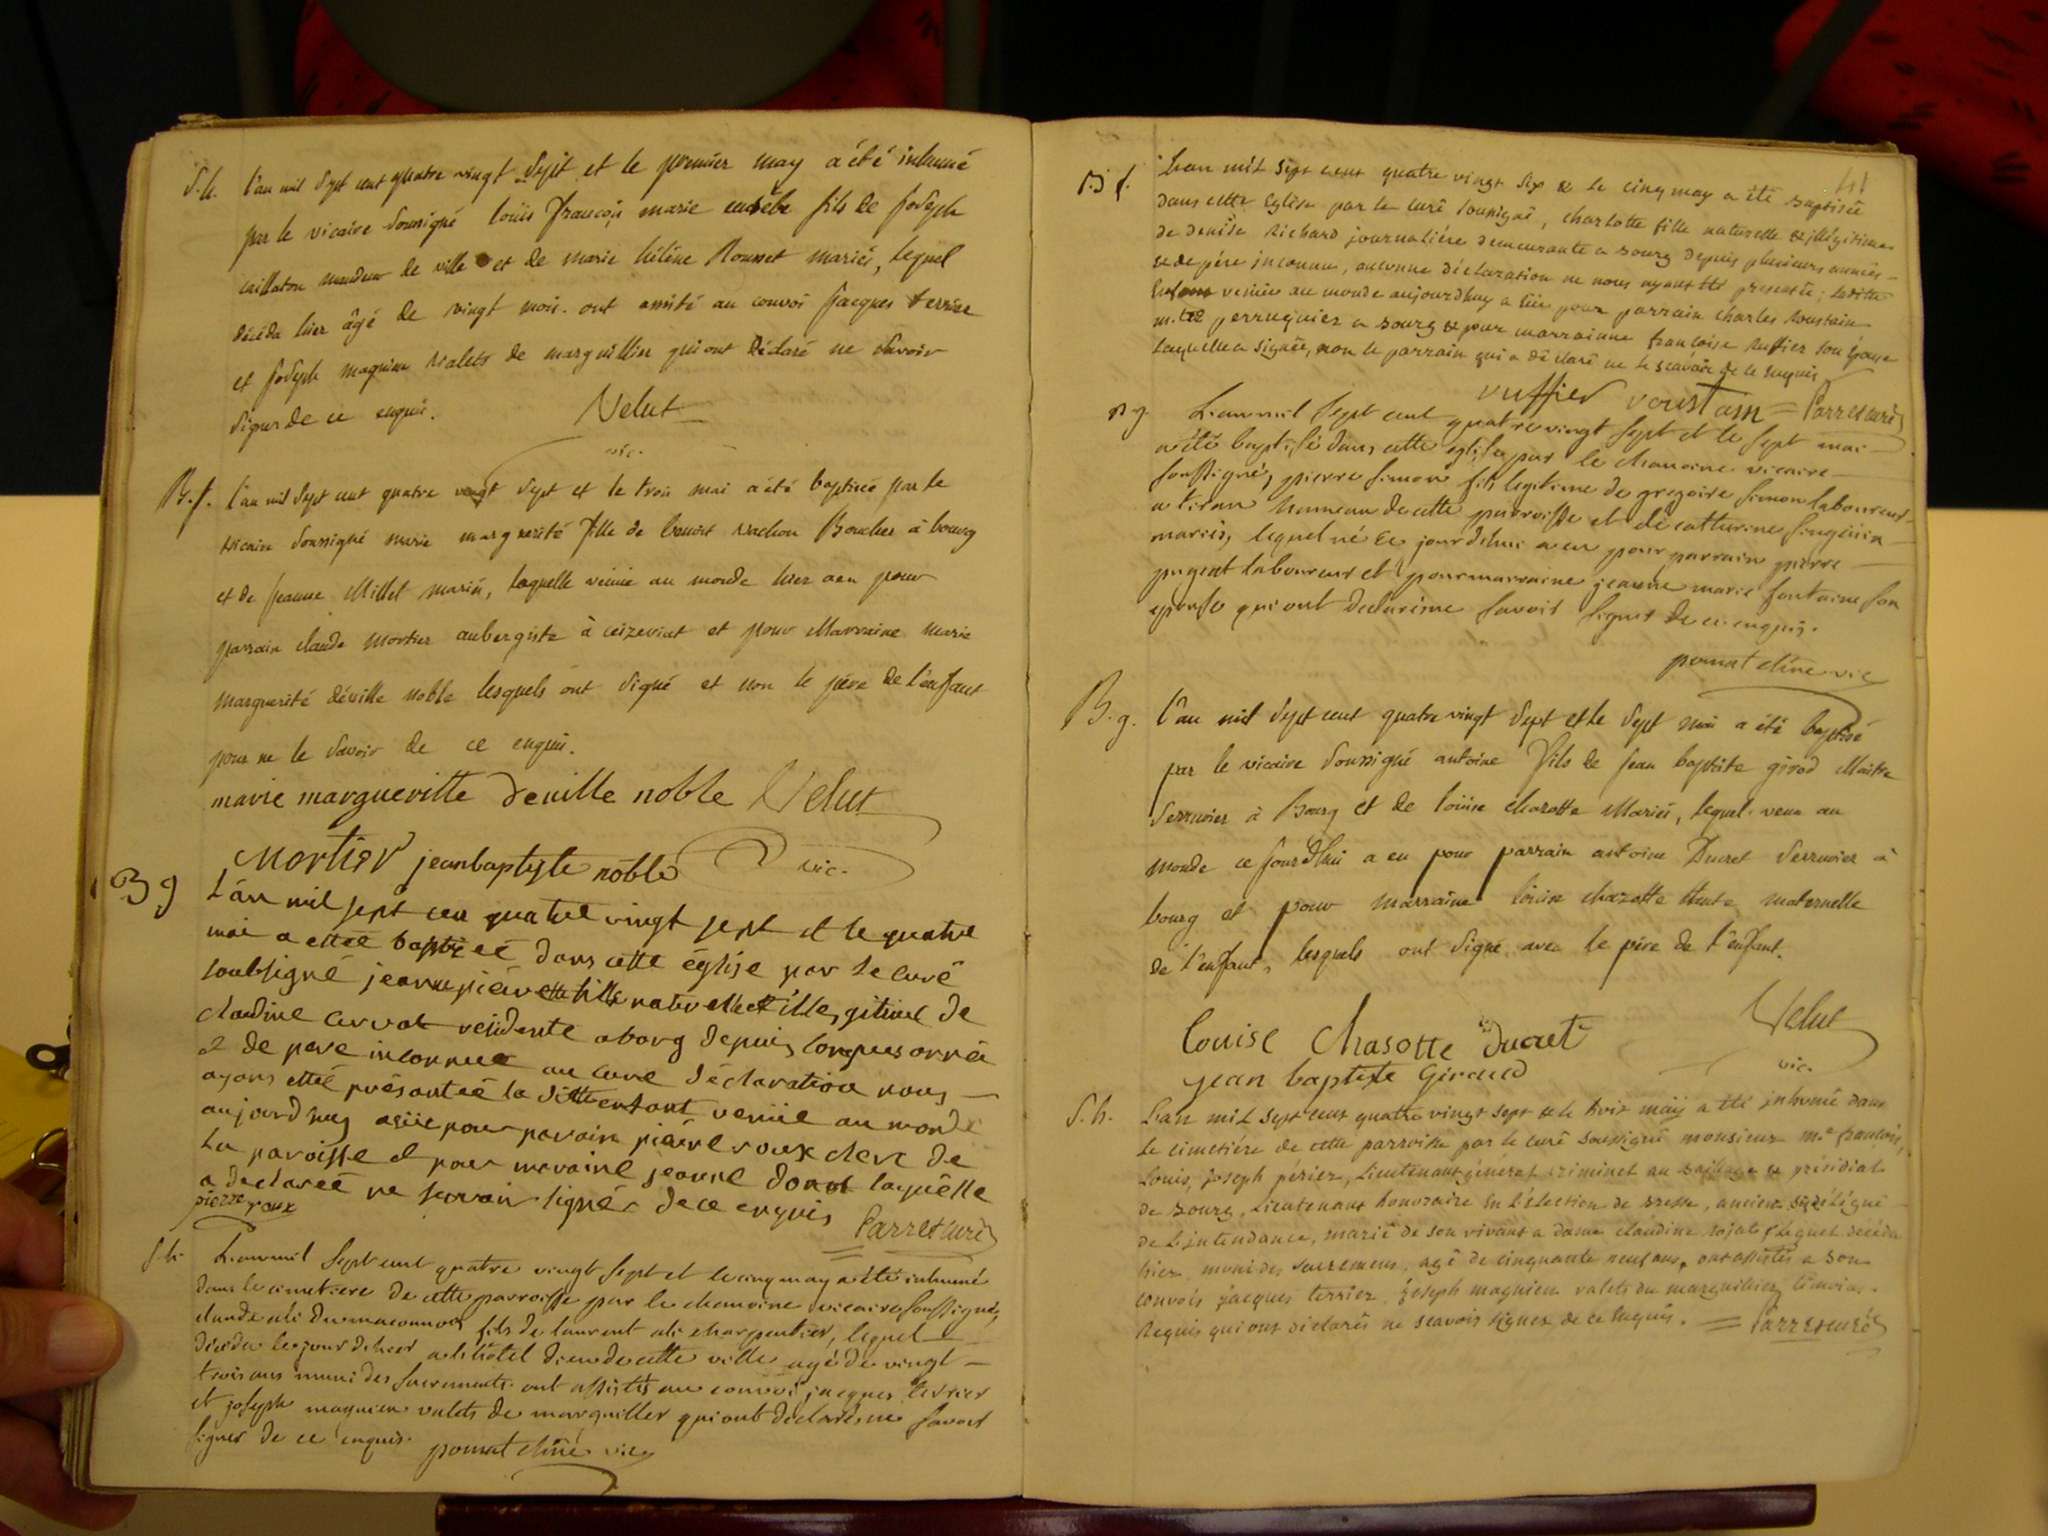 S.h. l'an mil Sept cent quatre vingt Sept et le premier may a été inhumé
par le vicaire Soussigné loüis françois marie eusèbe fils de Joseph
caillaton mandeur de ville et de marie hélène Rousset mariés, lequel
décéda hier âgé de vingt mois. ont assisté au convoi Jacques terrier
et Joseph magnien valets de marguillier qui ont déclaré ne Savoir
Signer de ce enquis. Velut
vic.
B.f. l'an mil Sept cent quatre vingt Sept et le trois mai a été baptisée par le
vicaire Soussigné marie marguerite fille de benoit vachon Boucher à bourg
et de Jeanne Millet mariés, laquelle venüe au monde hier a eu pour
parrain claude mortier aubergiste à ceizeriat et pour Marraine marie
marguerite déville noble lesquels ont Signé et non le père de l'enfant
pour ne le Savoir de ce enquis.
marie margueritte deville noble Velut
Mortier jean baptyste noble vic.
B g L'an mil sept cen quatre vingt sept et le quatre
mai a ettéé baptizeé dans cette église par le curé
soubsigné jeanne pierrette fille naturelle et illegitime de
claudine curvat residente a borg depuis longues année
et de pere inconnue aucune déclaration nous
ayans ettéé présantéé la ditte enfant venüe au monde
aujourdhuy a eüe pour parain pierre roux clerc de
la paroisse et pour maraine jeanne donat laquelle
a declareé ne scavoir signér de ce enquis
pierre roux Parret curé
S h. L'an mil Sept cent quatre vingt Sept et le cinq may a été inhumé
dans le cimetiere de cette parroisse par le chanoine vicaire soussigné,
claude ali du maconnois fils de laurent ali charpentier, lequel
décéda le jour dhier a l'hôtel dieu de cette ville agé de vingt
trois ans muni des sacrements. ont assistés au convoi jacques terrier
et joseph magnien valets de marguiller qui ont déclarés ne Savoir
signer de ce enquis. pomat chne vic
41
B f. L'an mil sept cent quatre vingt six & le cinq may a été baptisée
dans cette Eglise par le curé soussigné, charlotte fille naturelle & illégitime
de denise Richard journaliére demeurante a bourg depuis plusieurs années
& de pére inconnu, aucunne déclaration ne nous ayant été présentée; laditte
Enfant venüe au monde aujourdhuy a Eüe pour parrain charles voustain
m.tre perruquier a bourg & pour marrainne françoise vuffier son épouse
laquelle a signée, non le parrain qui a déclaré ne le scavoir de ce Enquis
vuffier voustain = Parret curé
B g. L'an mil Sept cent quatre vingt Sept et le sept mai
a été baptisé dans cette église par le chanoine vicaire
soussigné, pierre simon fils legitime de grégoire simon laboureur
a tiran hameau de cette parroisse et de catherine
mariés, lequel né ce jour d'hui a eu pour parrain pierre
pugent laboureur et pour marraine jeanne marie fontaine son
epouse qui ont declarés ne Savoir Signer de ce enquis.
pomat chne vic
B.g. l'an mil Sept cent quatre vingt Sept et le Sept mai a été baptisé
par le vicaire Soussigné antoine fils de Jean baptiste girod Maitre
Serrurier à Bourg et de loüise chazotte Mariés, lequel venu au
monde ce Jourd'hui a eu pour parrain antoine Ducret Serrurier à
bourg et pour marraine loüise chazotte tante maternelle
de l'enfant, lesquels ont Signé avec le père de l'enfant.
Velut
Louise Chasotte Ducret
vic.
jean baptiste Giraud
S. h. L'an mil sept cent quatre vingt sept & le trois maÿ a été jnhumé dans
le cimetiére de cette parroisse par le curé soussigné monsieur m.e francois,
Louis, joseph périer, Lieutenant général criminel au bailliage & présidial
de bourg, Lieutenant honoraire En l'élection de bresse, ancien subdélégué
de l'jntendance, marié de son vivant a dame claudine rojat lequel décéda
hier, muni des sacremens, agé de cinquante neuf ans, ont assistés a son
convois jacques terrier, joseph magnien valets du marguillier, témoins
Requis qui ont déclarés ne scavoir signer de ce Enquis. = Parret curé